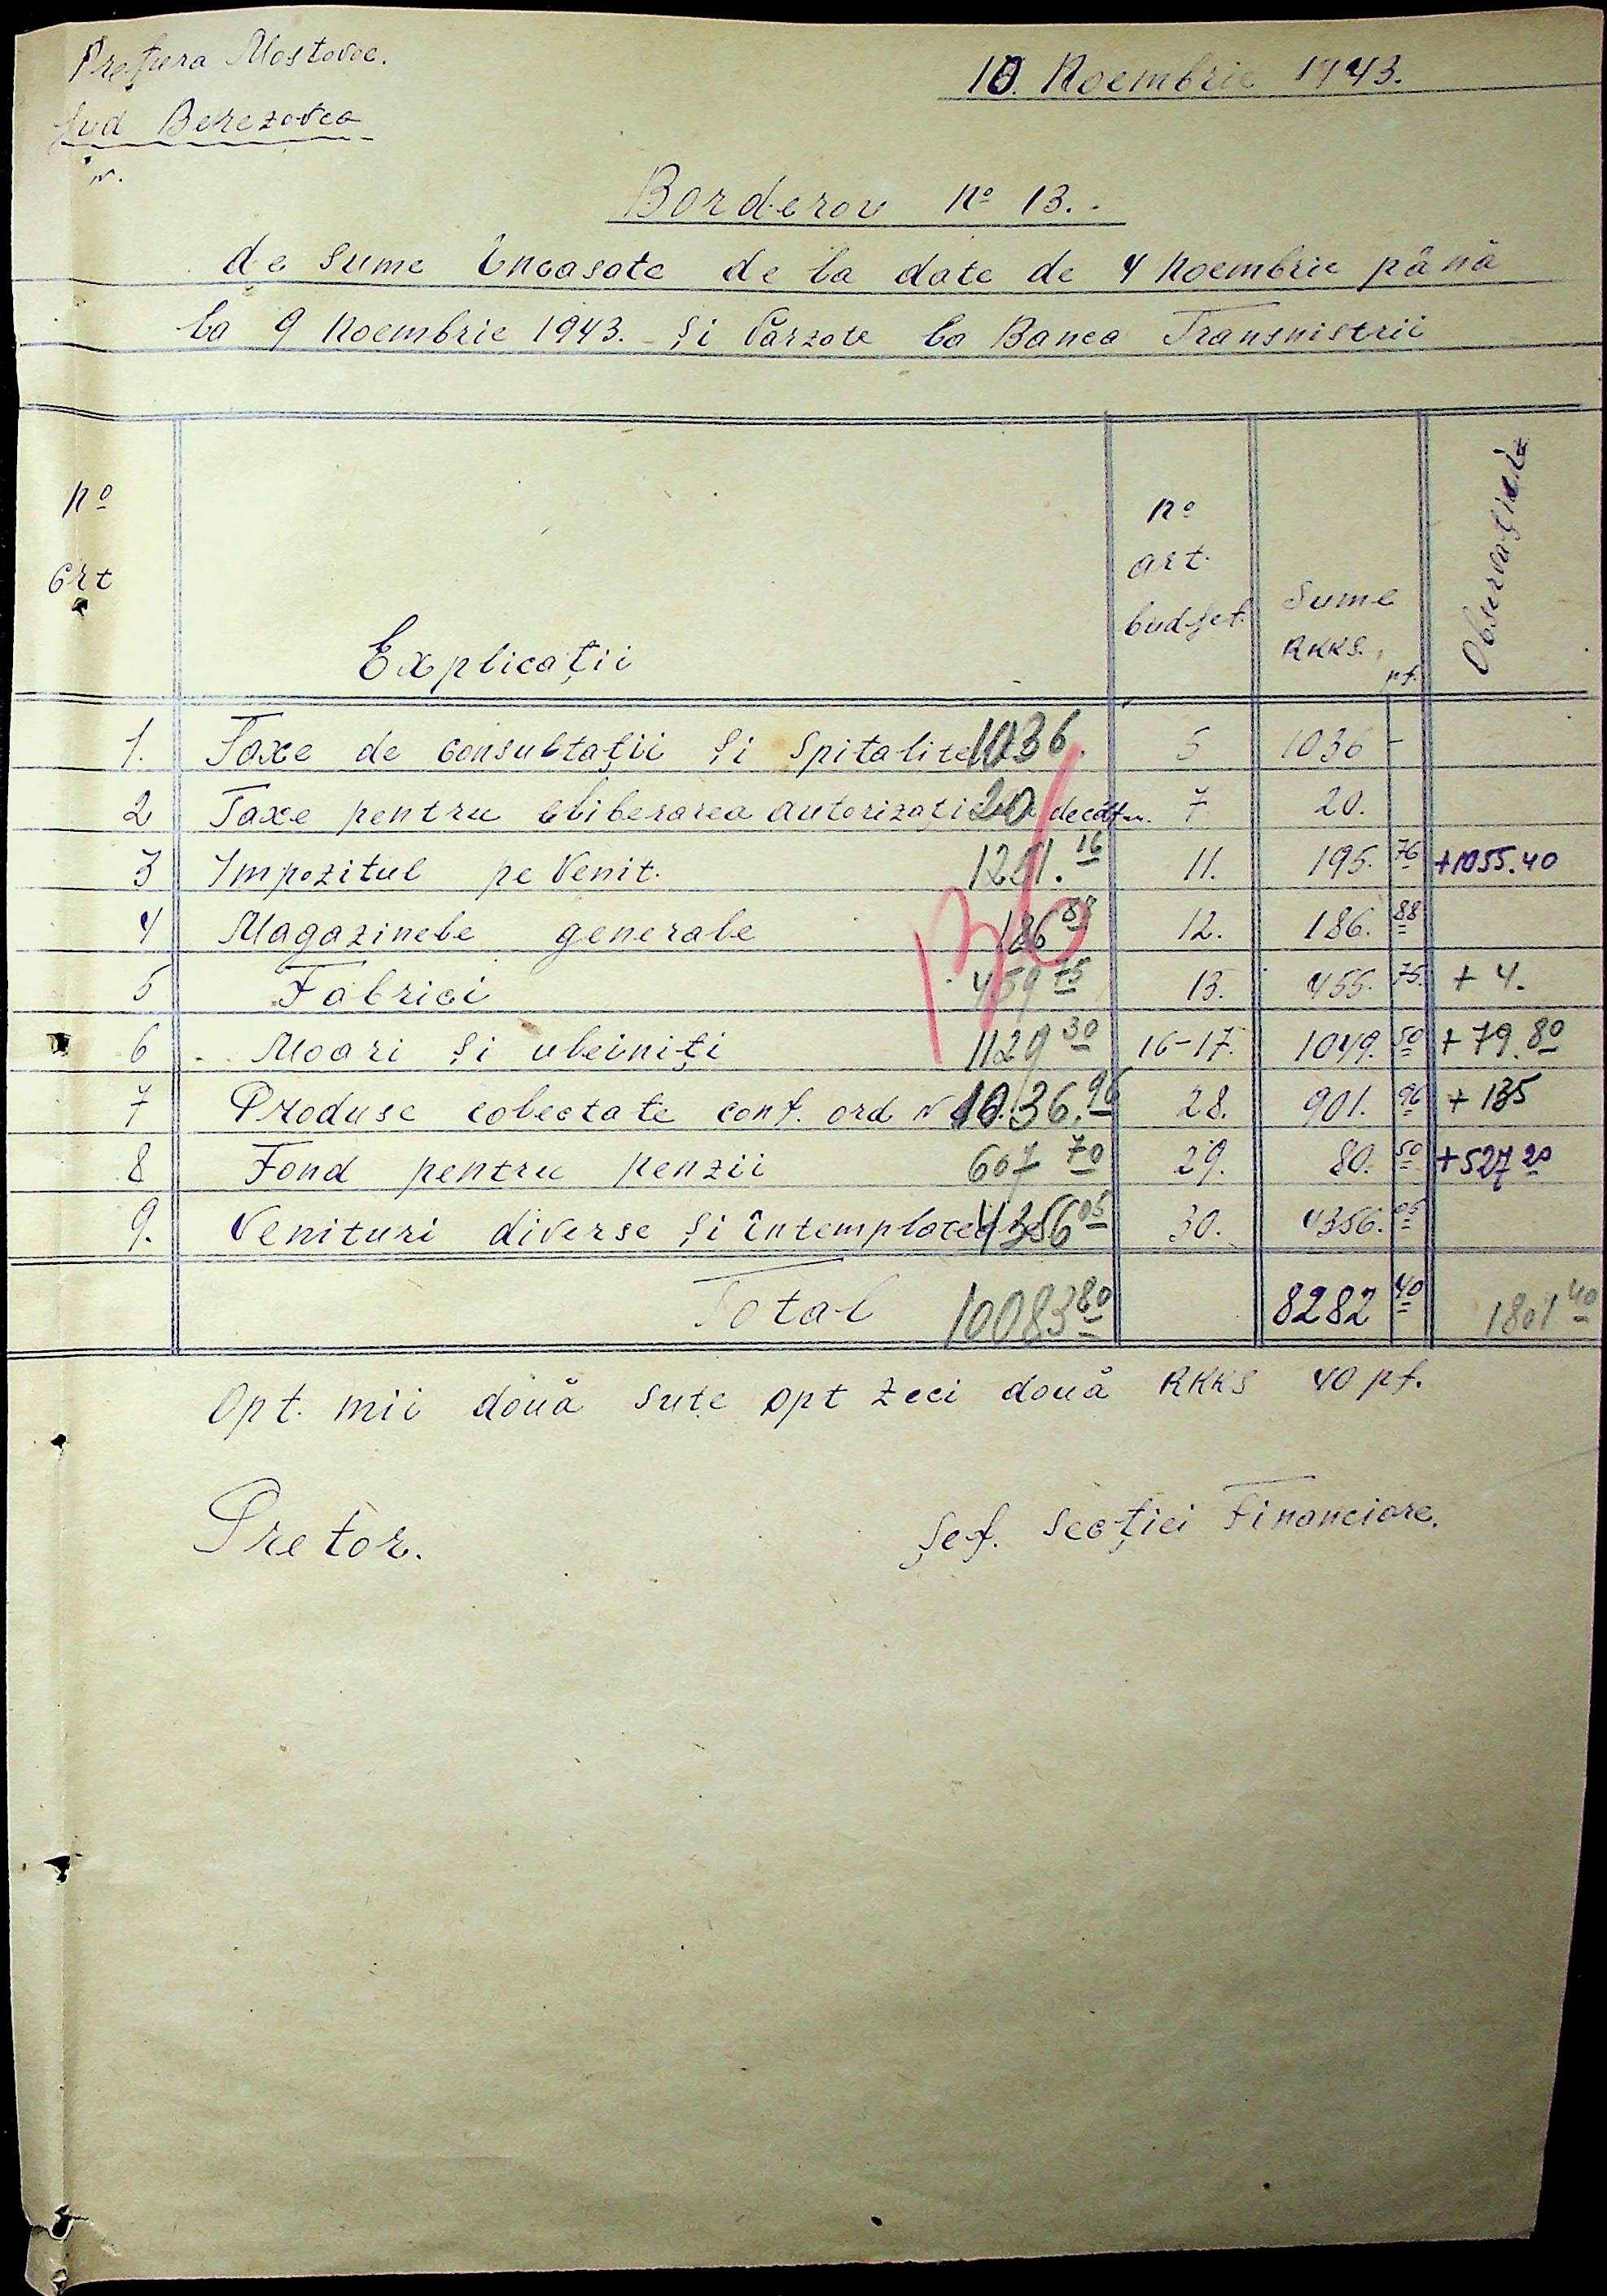 Prefura Mostovoe.
Jud Berezovca
N.
10. Noembrie 1943.
Borderou No 13.
de sume încasate de la date de 4 Noembrie până
la 9 Noembrie 1943. și vărzate la Banca Transnistrii
No Crt | Explicații | No art. budget. | Sume RKKS. pf. | Observațiile
1. Taxe de consultații și spitalite 1036. 5 1036 -
2 Taxe pentru eliberarea autorizați 20 7 20.
3 Impozitul pe Venit. 1251.16 11. 195.76 +1055.40
4 Magazinele generale 186 88 12. 186.88
5 Fabrici 459 75 13. 455.75. + 4.
6 Moari și uleiniți 1129 30 16-17. 1049.50 + 79.80
7 Produse colectate conf. ord N 1036.96 28. 901.96 + 135
8 Fond pentru penzii 607 70 29. 80.50 +527 20
9. Venituri diverse și întemplatoare 4356 05 30. 4356.05
Total 10083 80 8282 40 1801 40
Opt. mii două sute opt zeci două RKKS 40 pf.
Pretor.
Șef. Secției Financiare.